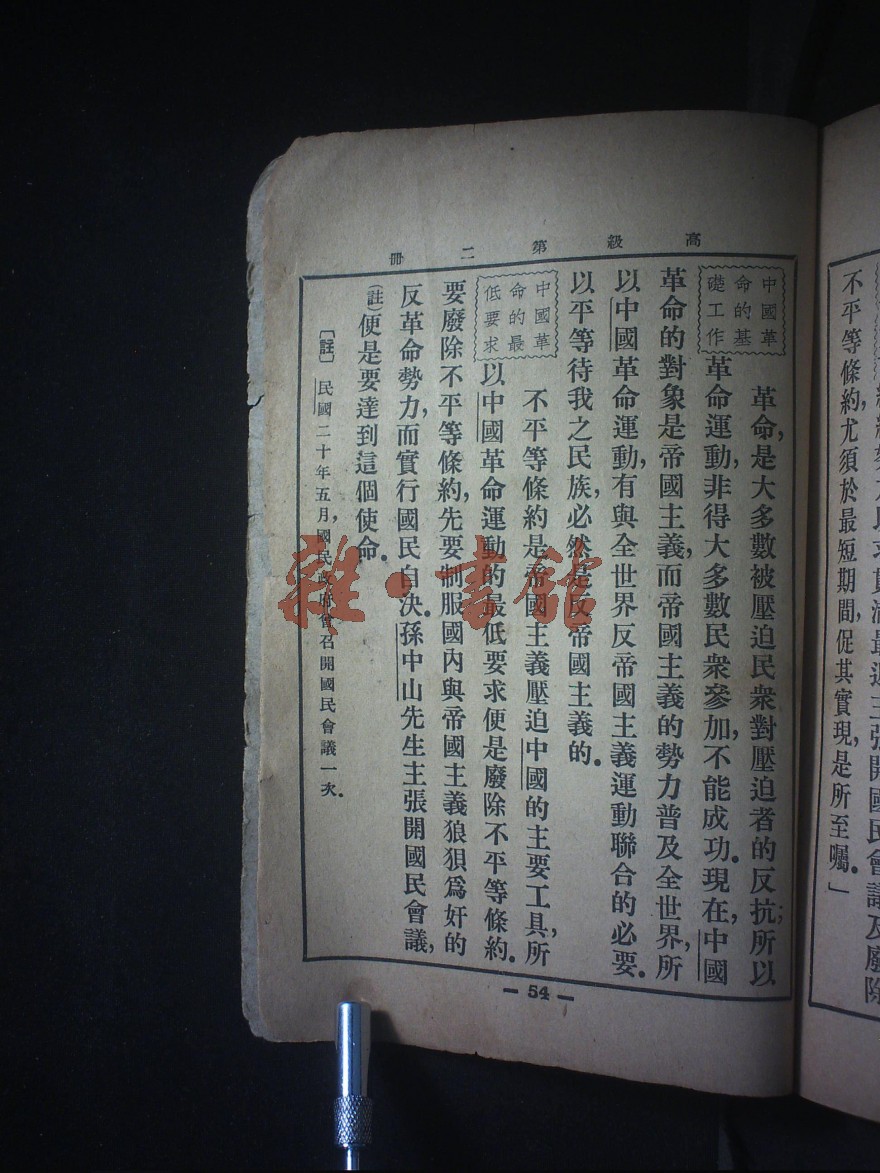 不平等條約,尤須於最短期間,促其實現,是所至囑。」
高級第二冊
中國革
命的基
礎工作
革命,是大多數被壓迫民衆對壓迫者的反抗;所以
革命運動,非得大多數民衆參加,不能成功。現在,中國
革命的對象是帝國主義,而帝國主義的勢力普及全世界,所
以中國革命運動,有與全世界反帝國主義運動聯合的必要。
以平等待我之民族,必然是反帝國主義的。
中國革
命的最
低要求
不平等條約是帝國主義壓迫中國的主要工具,所
以中國革命運動的最低要求便是廢除不平等條約。
要廢除不平等條約,先要制服國內與帝國主義狼狽爲奸的
反革命勢力,而實行國民自決。孫中山先生主張開國民會議,
(註)便是要達到這個使命。
〔註〕民國二十年五月,國民政府曾召開國民會議一次。
— 54 —
雜·書館